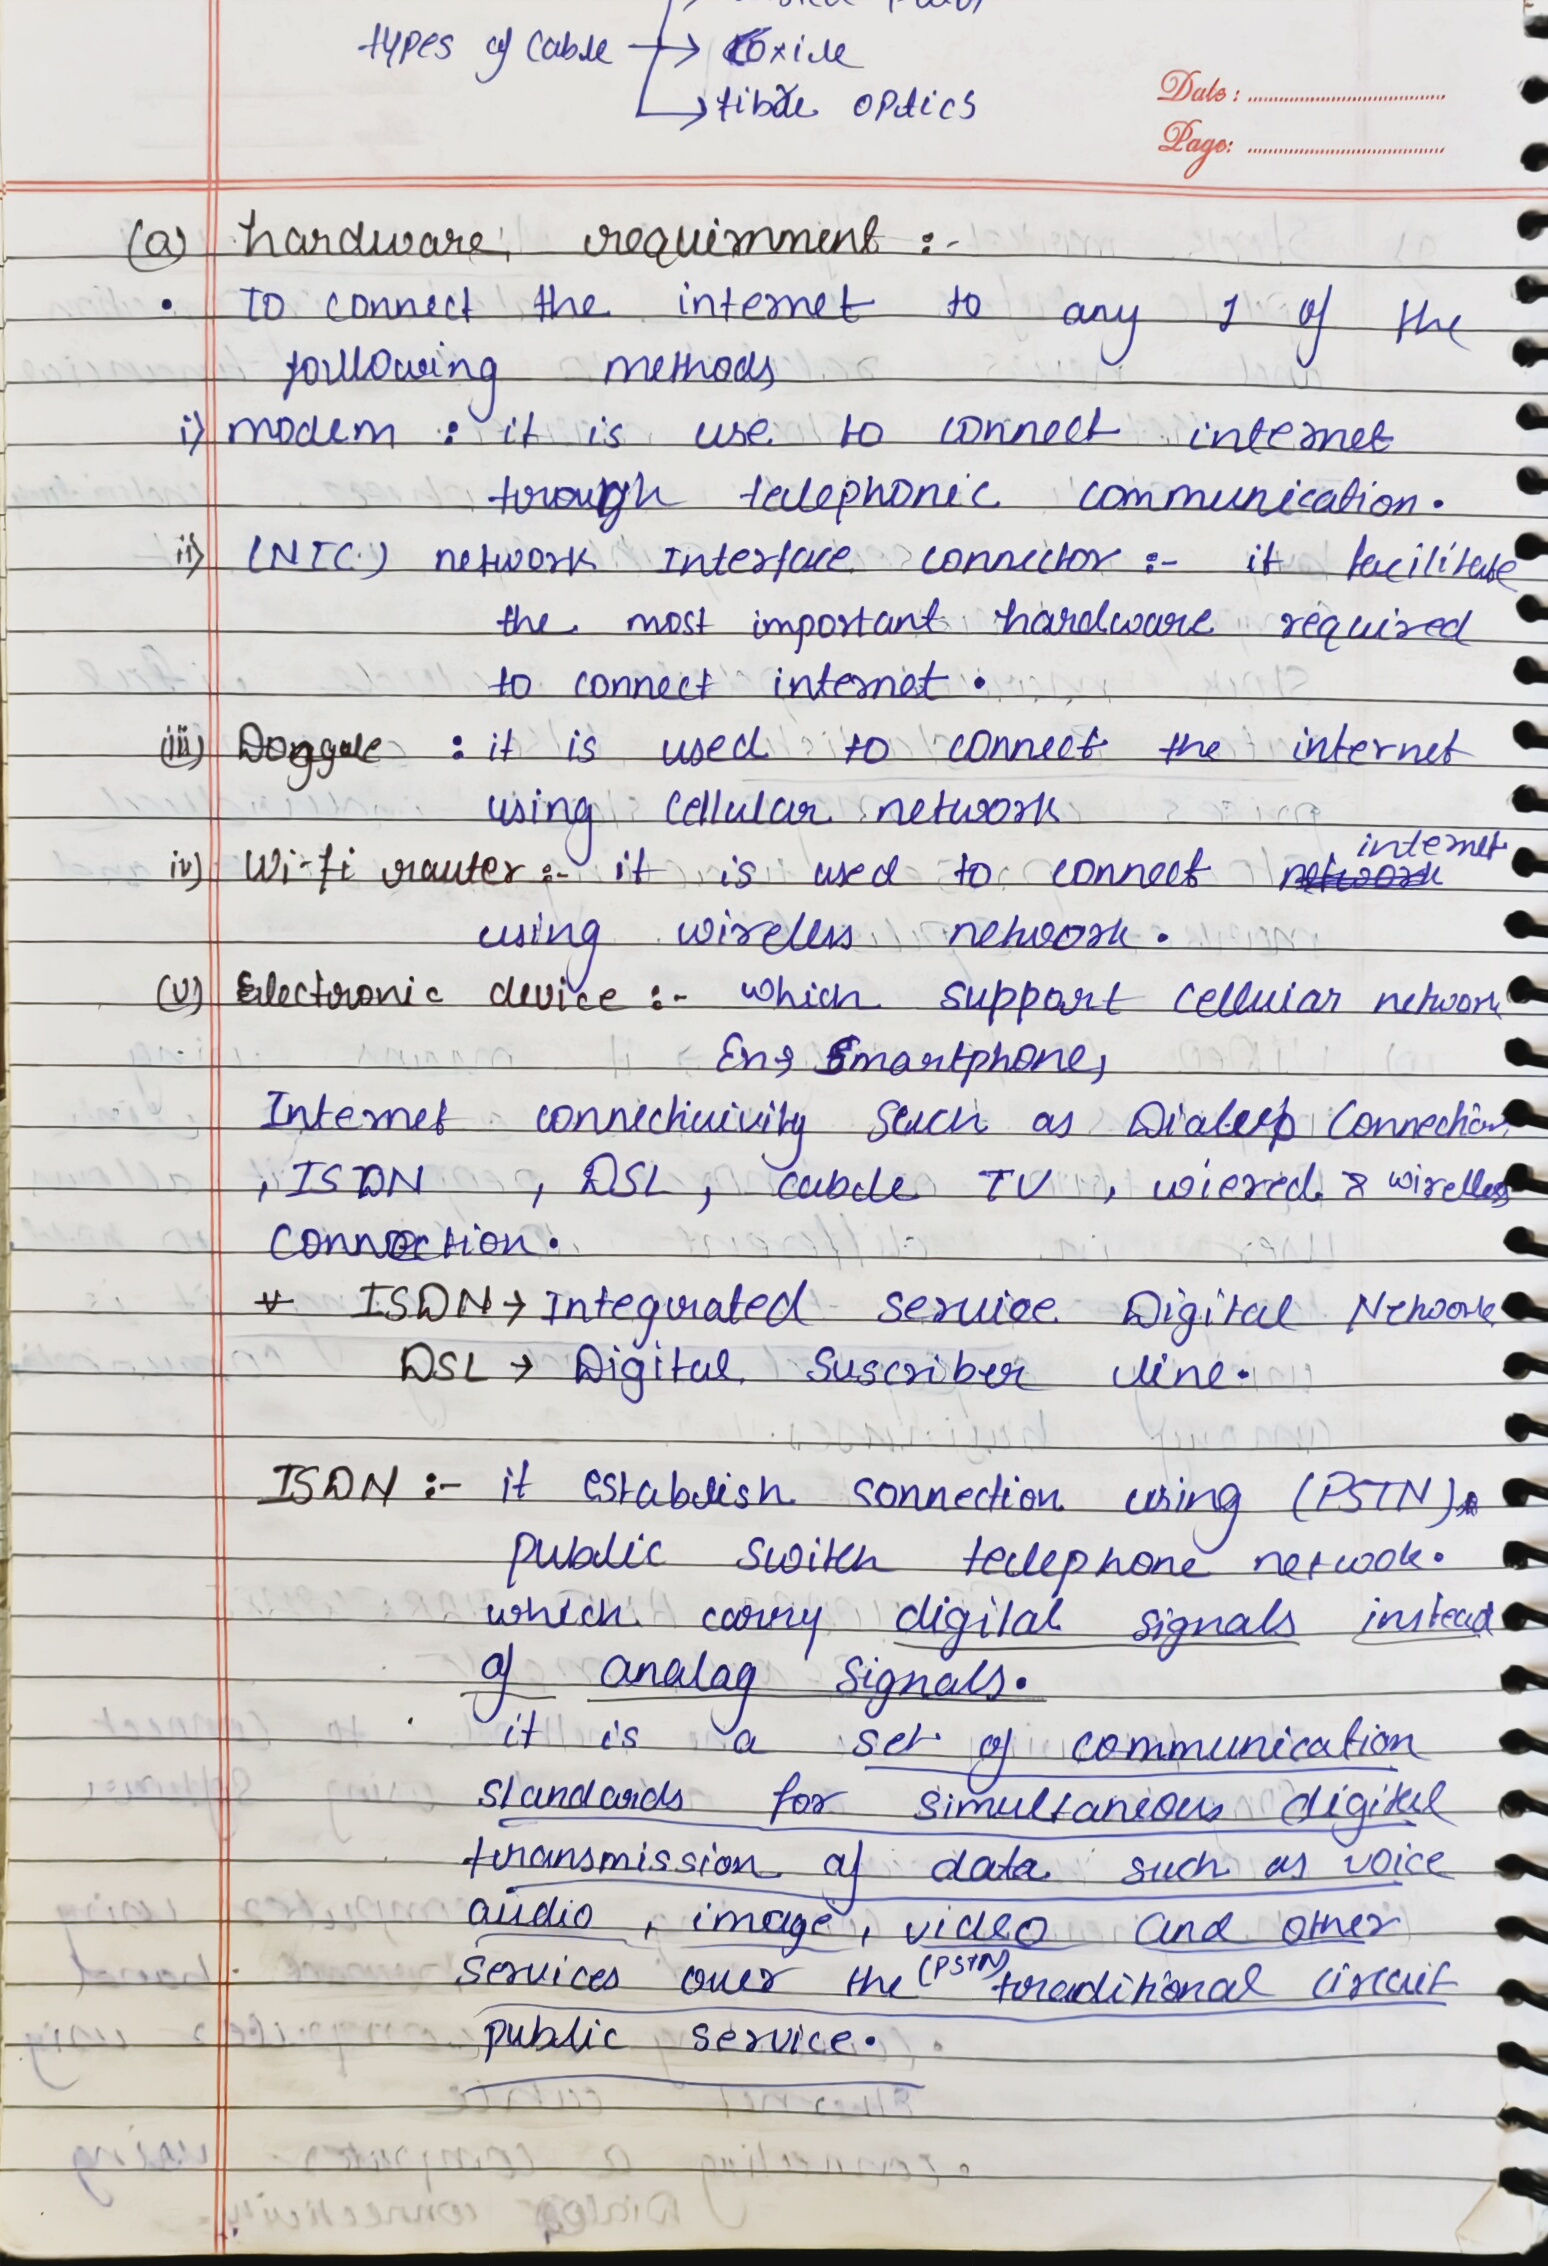 types of cable → Coxile
→ fibre optics
Date :
Page:
(a) hardware requirnment :-
• To connect the internet to any 1 of the
following methods
i) modem : it is use to connect internet
through telephonic communication.
ii) (NIC) network Interface connector :- it facilitate
the most important hardware required
to connect internet.
(iii) Donggle : it is used to connect the internet
using cellular network
internet
iv) Wi-fi router :- it is used to connect network
using wireless network.
(v) Electronic device :- which support cellular network
En, Smartphone,
Internet connectivity such as Dialup Connection
, ISDN , DSL , cable TV , wiered & wireless
connection.
* ISDN → Integrated service Digital Network
DSL → Digital Suscriber line.
ISDN :- it establish connection using (PSTN)
public switch telephone netwok.
which carry digital signals instead
of analag signals.
it is a set of communication
standards for simultanious digital
transmission of data such as voice
audio , image , video and other
services over the (PSTN) traditional circuit
public service.